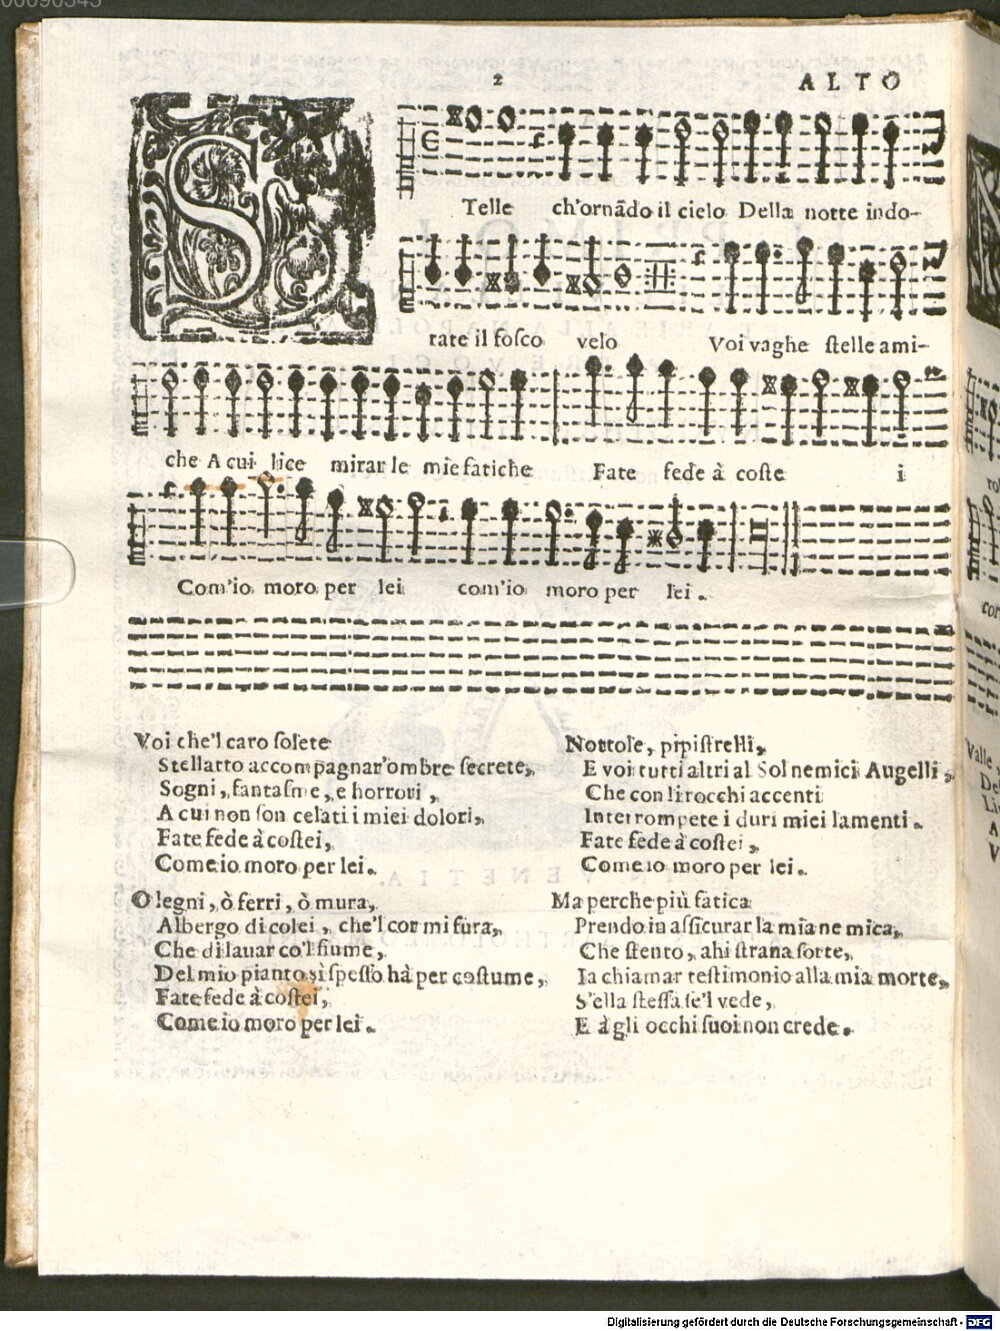 00090345
2
ALTO
STelle ch'ornādo il cielo Della notte indo-
rate il fosco velo Voi vaghe stelle ami-
che A cui lice mirar le mie fatiche Fate fede à coste i
Com'io moro per lei com'io moro per lei.
Voi che'l caro solete
Stellatto accompagnar'ombre secrete,
Sogni, fantasme, e horrori,
A cui non son celati i miei dolori,
Fate fede à costei,
Come io moro per lei.
O legni, ò ferri, ò mura,
Albergo di colei, che'l cor mi fura,
Che di lauar co'l fiume,
Del mio pianto sì spesso hà per costume,
Fate fede à costei,
Come io moro per lei.
Nottole, pipistrelli,
E voi tutti altri al Sol nemici Augelli,
Che con li rocchi accenti
Interrompete i duri miei lamenti.
Fate fede à costei,
Come io moro per lei.
Ma perche più fatica
Prendo in assicurar la mia nemica,
Che stento, ahi strana sorte,
Ia chiamar testimonio alla mia morte,
S'ella stessa se'l vede,
E à gli occhi suoi non crede.
Valle,
De
Li
A
V
Digitalisierung gefördert durch die Deutsche Forschungsgemeinschaft - DFG